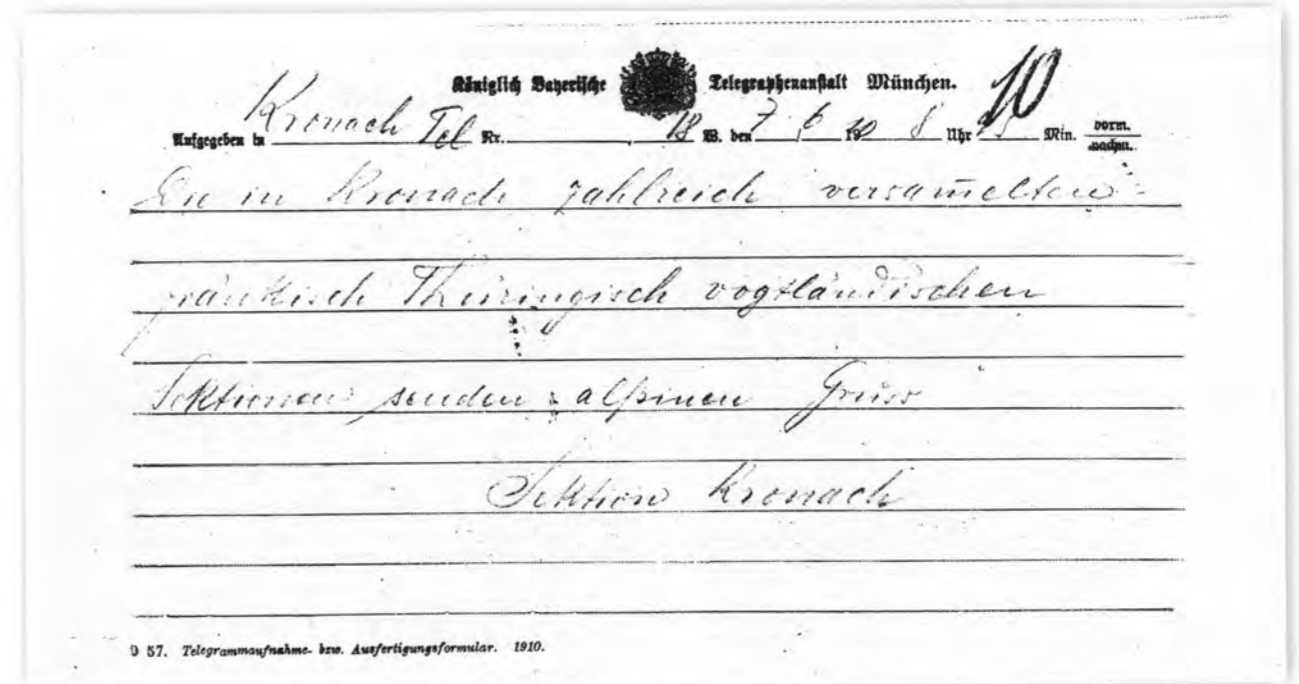 Königlich Bayerische Telegraphenanstalt München. 10
Aufgegeben in Kronach Tel Nr. 18 W. den 7 6 1910 8 Uhr 25 Min. vorm. nachm.
Die in Kronach zahlreich versam̄elten
fränkisch Thüringisch vogtländischen
Sektionen senden alpinen Gruss
Sektion Kronach
D 57. Telegrammaufnahme- bzw. Ausfertigungsformular. 1910.